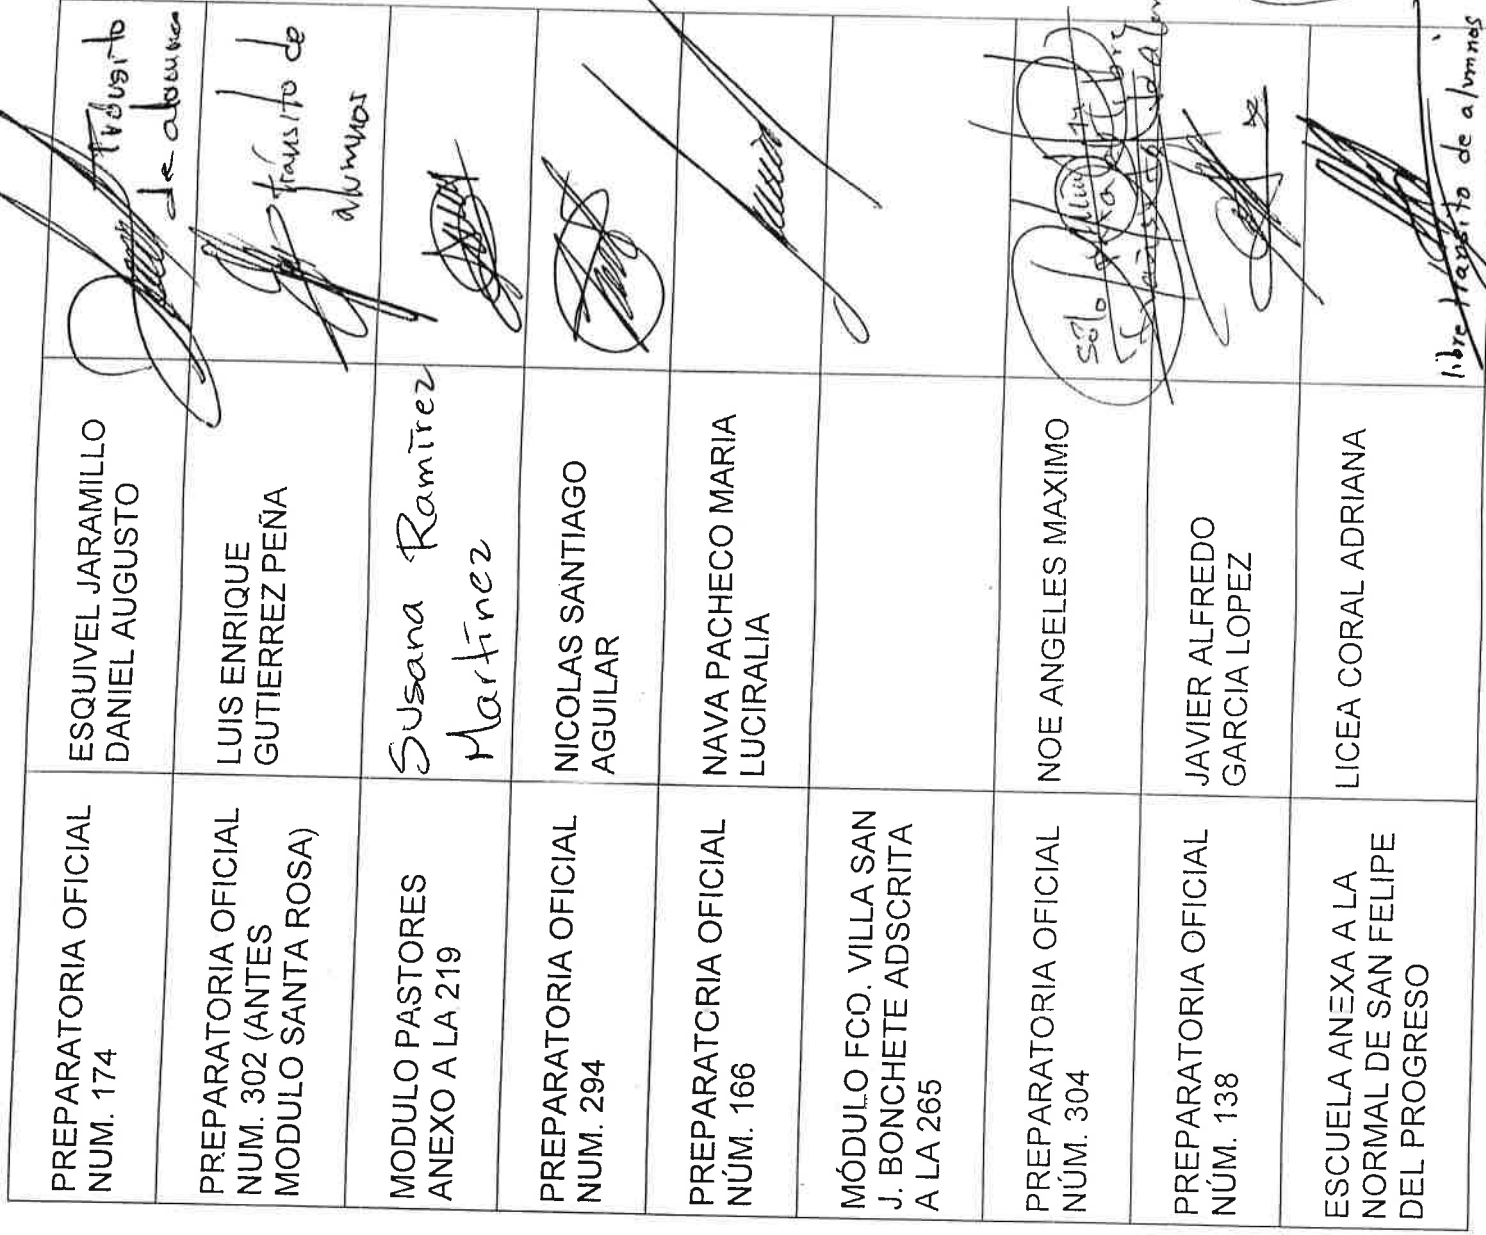 PREPARATORIA OFICIAL
NUM. 174
ESQUIVEL JARAMILLO
DANIEL AUGUSTO
de alumnos
PREPARATORIA OFICIAL
NUM. 302 (ANTES
MODULO SANTA ROSA)
LUIS ENRIQUE
GUTIERREZ PEÑA
tránsito de
alumnos
MODULO PASTORES
ANEXO A LA 219
Susana Ramírez
Martínez
PREPARATORIA OFICIAL
NUM. 294
NICOLAS SANTIAGO
AGUILAR
PREPARATORIA OFICIAL
NÚM. 166
NAVA PACHECO MARIA
LUCIRALIA
MÓDULO FCO. VILLA SAN
J. BONCHETE ADSCRITA
A LA 265
PREPARATORIA OFICIAL
NÚM. 304
NOE ANGELES MAXIMO
Sólo
PREPARATORIA OFICIAL
NÚM. 138
JAVIER ALFREDO
GARCIA LOPEZ
ESCUELA ANEXA A LA
NORMAL DE SAN FELIPE
DEL PROGRESO
LICEA CORAL ADRIANA
libre tránsito de alumnos